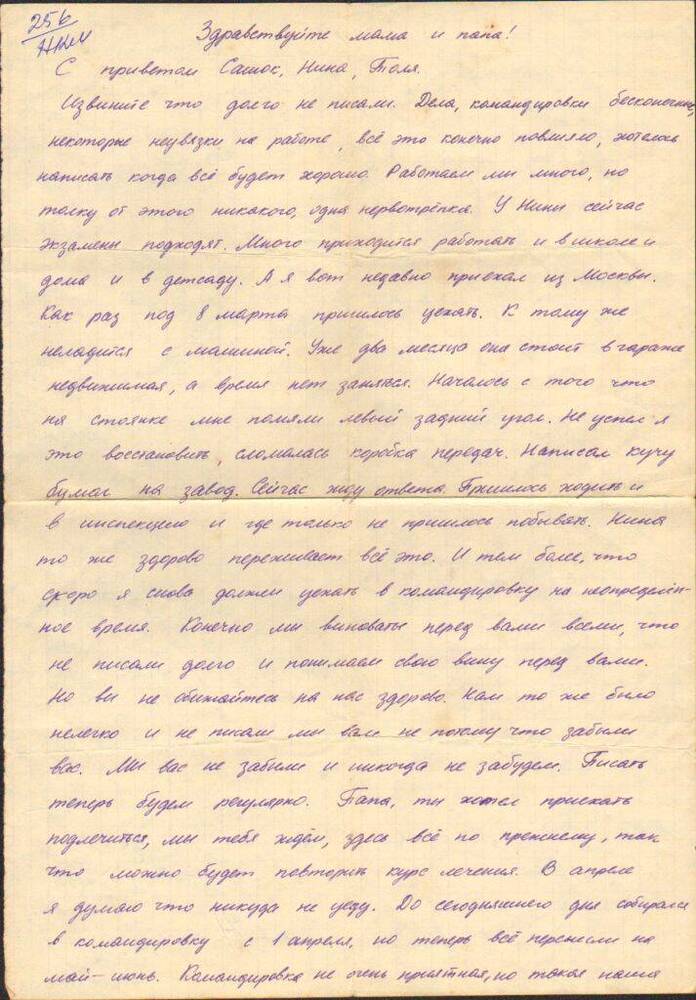 256
НКМ
Здравствуйте мама и папа!
С приветом Сашок, Нина, Толя.
Извините что долго не писали. Дела, командировки бесконечные,
некоторые неувязки на работе, всё это конечно повлияло, хотелось
написать когда всё будет хорошо. Работаем мы много, но
толку от этого никакого, одна нервотрёпка. У Нины сейчас
экзамены подходят. Много приходится работать и в школе и
дома и в детсаду. А я вот недавно приехал из Москвы.
Как раз под 8 марта пришлось уехать. К тому же
неладится с машиной. Уже два месяца она стоит в гараже
недвижимая, а время нет заняться. Началось с того что
на стоянке мне помяли левый задний угол. Не успел я
это восстановить, сломалась коробка передач. Написал кучу
бумаг на завод. Сейчас жду ответа. Пришлось ходить и
в инспекцию и где только не пришлось побывать. Нина
то же здорово переживает всё это. И тем более, что
скоро я снова должен уехать в командировку на неопределён-
ное время. Конечно мы виноваты перед вами всеми, что
не писали долго и понимаем свою вину перед вами.
Но вы не обижайтесь на нас здорово. Нам то же было
нелегко и не писали мы вам не потому что забыли
вас. Мы вас не забыли и никогда не забудем. Писать
теперь будем регулярно. Папа, ты хотел приехать
подлечиться, мы тебя ждём, здесь всё по прежнему, так
что можно будет повторить курс лечения. В апреле
я думаю что никуда не уеду. До сегодняшнего дня собирался
в командировку с 1 апреля, но теперь всё перенесли на
май-июнь. Командировка не очень приятная, но такая наша